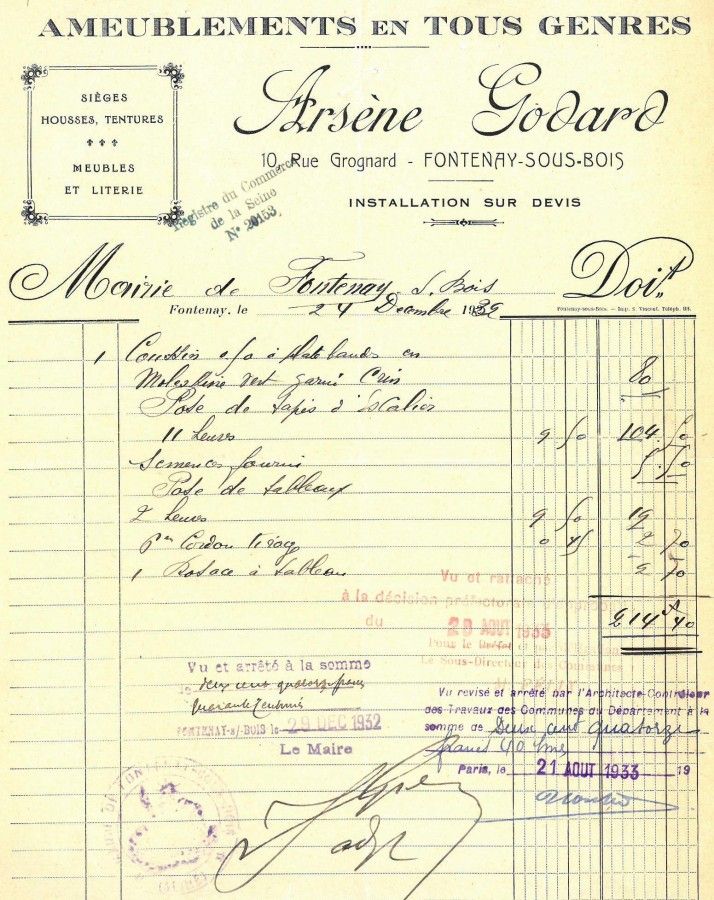 AMEUBLEMENTS EN TOUS GENRES
SIÈGES
HOUSSES, TENTURES
MEUBLES
ET LITERIE
Arsène Godard
10, Rue Grognard - FONTENAY-SOUS-BOIS
INSTALLATION SUR DEVIS
Registre du Commerce
de la Seine
N° 20153
Mairie de Fontenay s. Bois Doit
Fontenay, le 24 Decembre 1932
Fontenay-sous-Bois. - Imp. S. Vincent. Téléph. 118.
1 Coussin à plate bande en
Moleskine vert garni Crin 80
Pose de tapis d'Escalier
11 heures 9 50 104 50
Semences fournie 5.50
Pose de tableaux
2 heures 9 50 19
6m Cordon tirage 0 45 2 70
1 Rosace à tableau 2 70
214f 40
Vu et rattaché
à la décision préfectorale
du 29 AOUT 1933
Pour le Préfet
Le Sous-Directeur
Vu et arrêté à la somme
de deux cent quatorze francs
quarante centimes
FONTENAY-s/-BOIS le 29 DEC 1932
Le Maire
Vu revisé et arrêté par l'Architecte-Contrôleur
des Travaux des Communes du Département à la
somme de Deux cent quatorze
francs 40 cmes
Paris, le 21 AOUT 1933 19